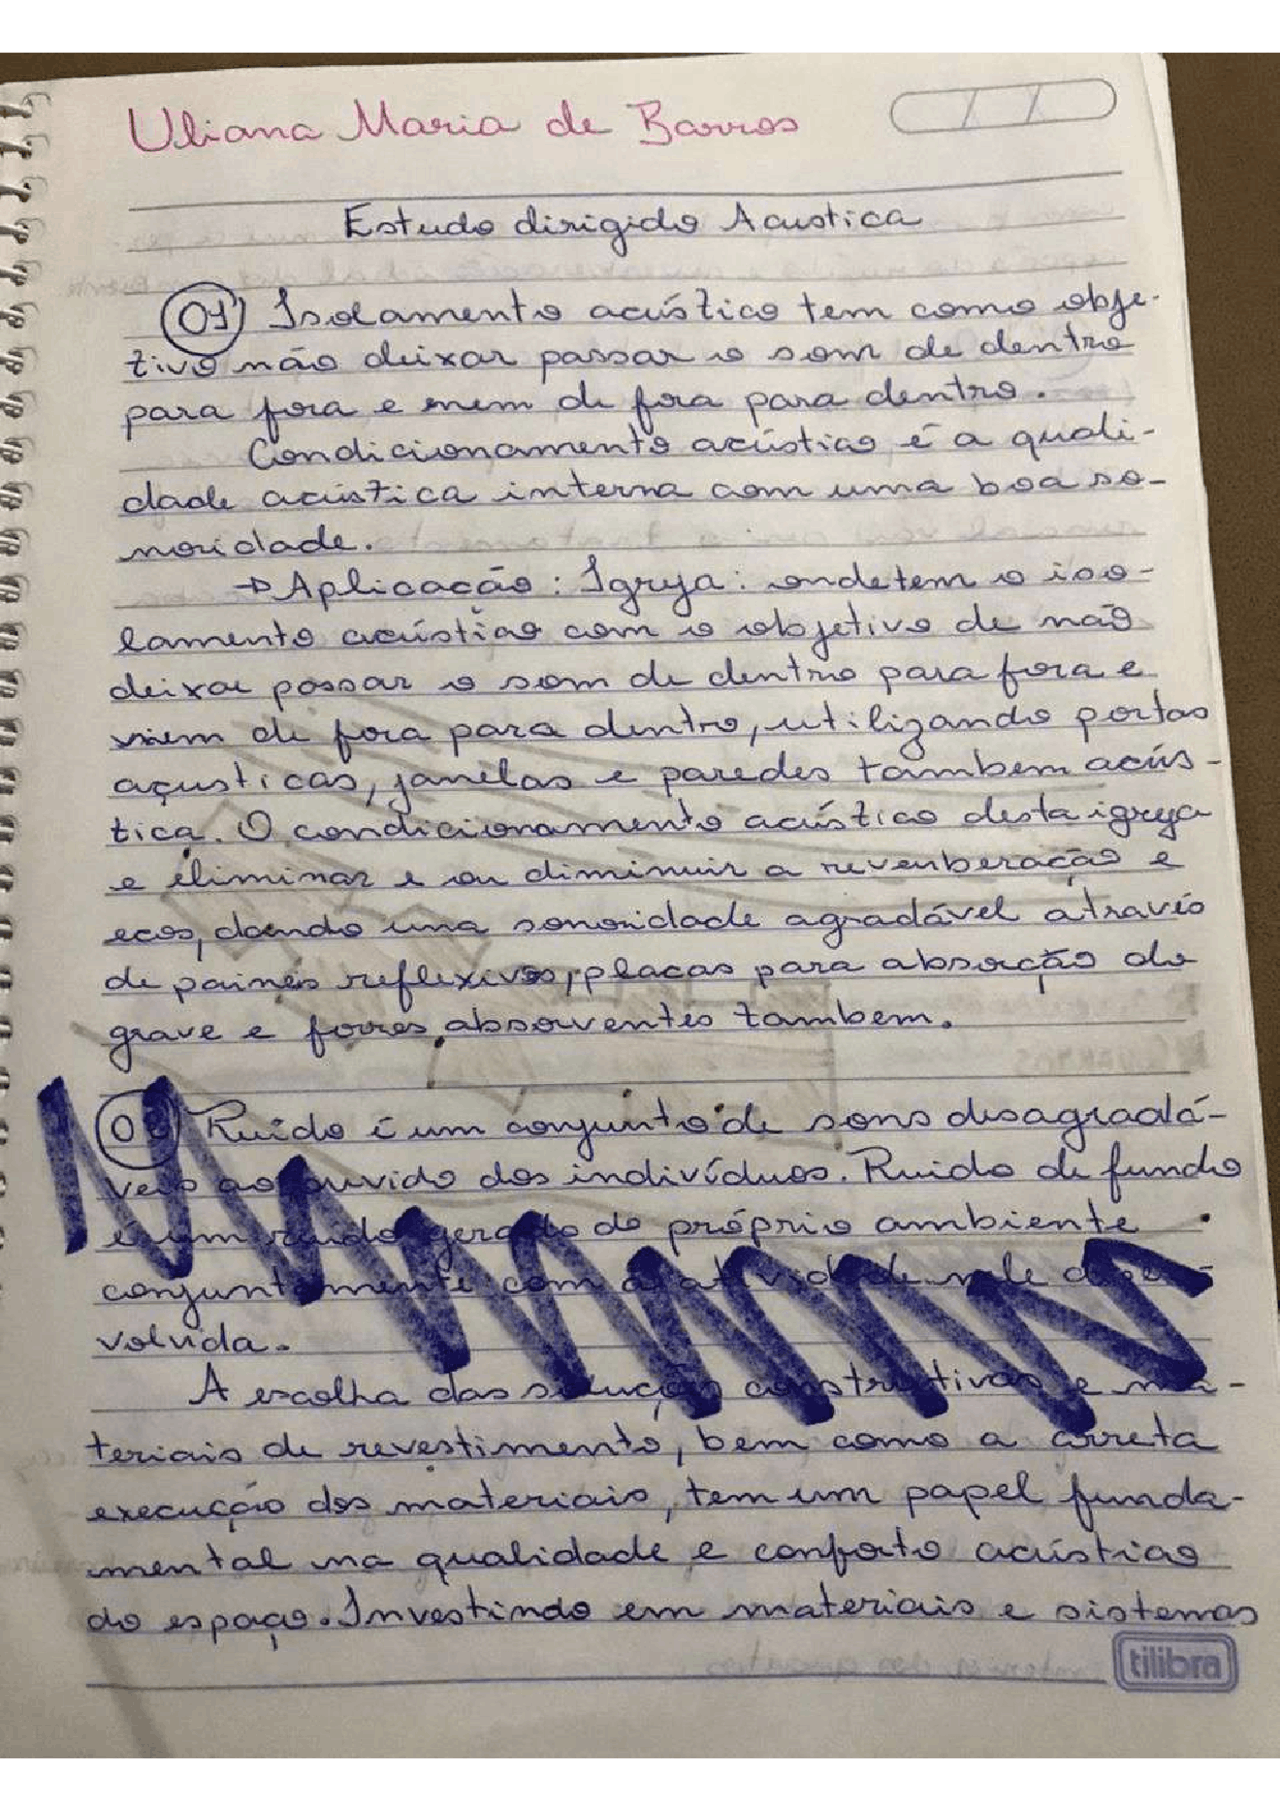 Uliana Maria de Barros
Estudo dirigido Acustica
01) Isolamento acústico tem como obje-
tivo não deixar passar o som de dentro
para fora e nem de fora para dentro.
Condicionamento acústico é a quali-
dade acústica interna com uma boa so-
noridade.
→ Aplicação: Igreja: onde tem o iso-
lamento acústico com o objetivo de não
deixar passar o som de dentro para fora e
nem de fora para dentro, utilizando portas
açusticas, janelas e paredes tambem acús-
tica. O condicionamento acústico desta igreja
e eliminar e ou diminuir a reverberação e
ecos, dando uma sonoridade agradável através
de painés reflexivos, placas para absorção do
grave e forros absorventes tambem.
Ruído é um conjunto de sons desagradá-
veis ao ouvido dos indivíduos. Ruido de fundo
é um ruido gerado do próprio ambiente
conjuntamente com a atividade nele desen-
volvida.
A escolha das solução construtivas e ma-
teriais de revestimento, bem como a correta
execução dos materiais, tem um papel funda-
mental na qualidade e conforto acústico
do espaço. Investindo em materiais e sistemas
tilibra